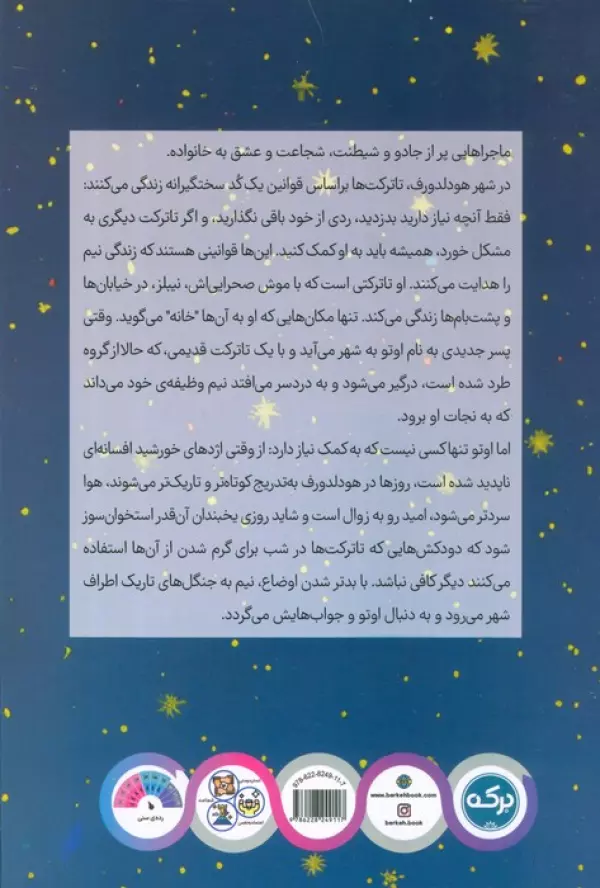 ماجراهایی پر از جادو و شیطنت، شجاعت و عشق به خانواده.
در شهر هودلدورف، تاترکت‌ها براساس قوانین یک کُد سختگیرانه زندگی می‌کنند:
فقط آنچه نیاز دارید بدزدید، ردی از خود باقی نگذارید، و اگر تاترکت دیگری به
مشکل خورد، همیشه باید به او کمک کنید. این‌ها قوانینی هستند که زندگی نیم
را هدایت می‌کنند. او تاترکتی است که با موش صحرایی‌اش، نیبلز، در خیابان‌ها
و پشت‌بام‌ها زندگی می‌کند. تنها مکان‌هایی که او به آن‌ها "خانه" می‌گوید. وقتی
پسر جدیدی به نام اوتو به شهر می‌آید و با یک تاترکت قدیمی، که حالا از گروه
طرد شده است، درگیر می‌شود و به دردسر می‌افتد نیم وظیفه‌ی خود می‌داند
که به نجات او برود.
اما اوتو تنها کسی نیست که به کمک نیاز دارد: از وقتی اژدهای خورشید افسانه‌ای
ناپدید شده است، روزها در هودلدورف به‌تدریج کوتاه‌تر و تاریک‌تر می‌شوند، هوا
سردتر می‌شود، امید رو به زوال است و شاید روزی یخبندان آن‌قدر استخوان‌سوز
شود که دودکش‌هایی که تاترکت‌ها در شب برای گرم شدن از آن‌ها استفاده
می‌کنند دیگر کافی نباشد. با بدتر شدن اوضاع، نیم به جنگل‌های تاریک اطراف
شهر می‌رود و به دنبال اوتو و جواب‌هایش می‌گردد.
رده‌ی سنی
978-622-8249-11-7
9786228249117
www.berkehbook.com
berkeh.book
برکه